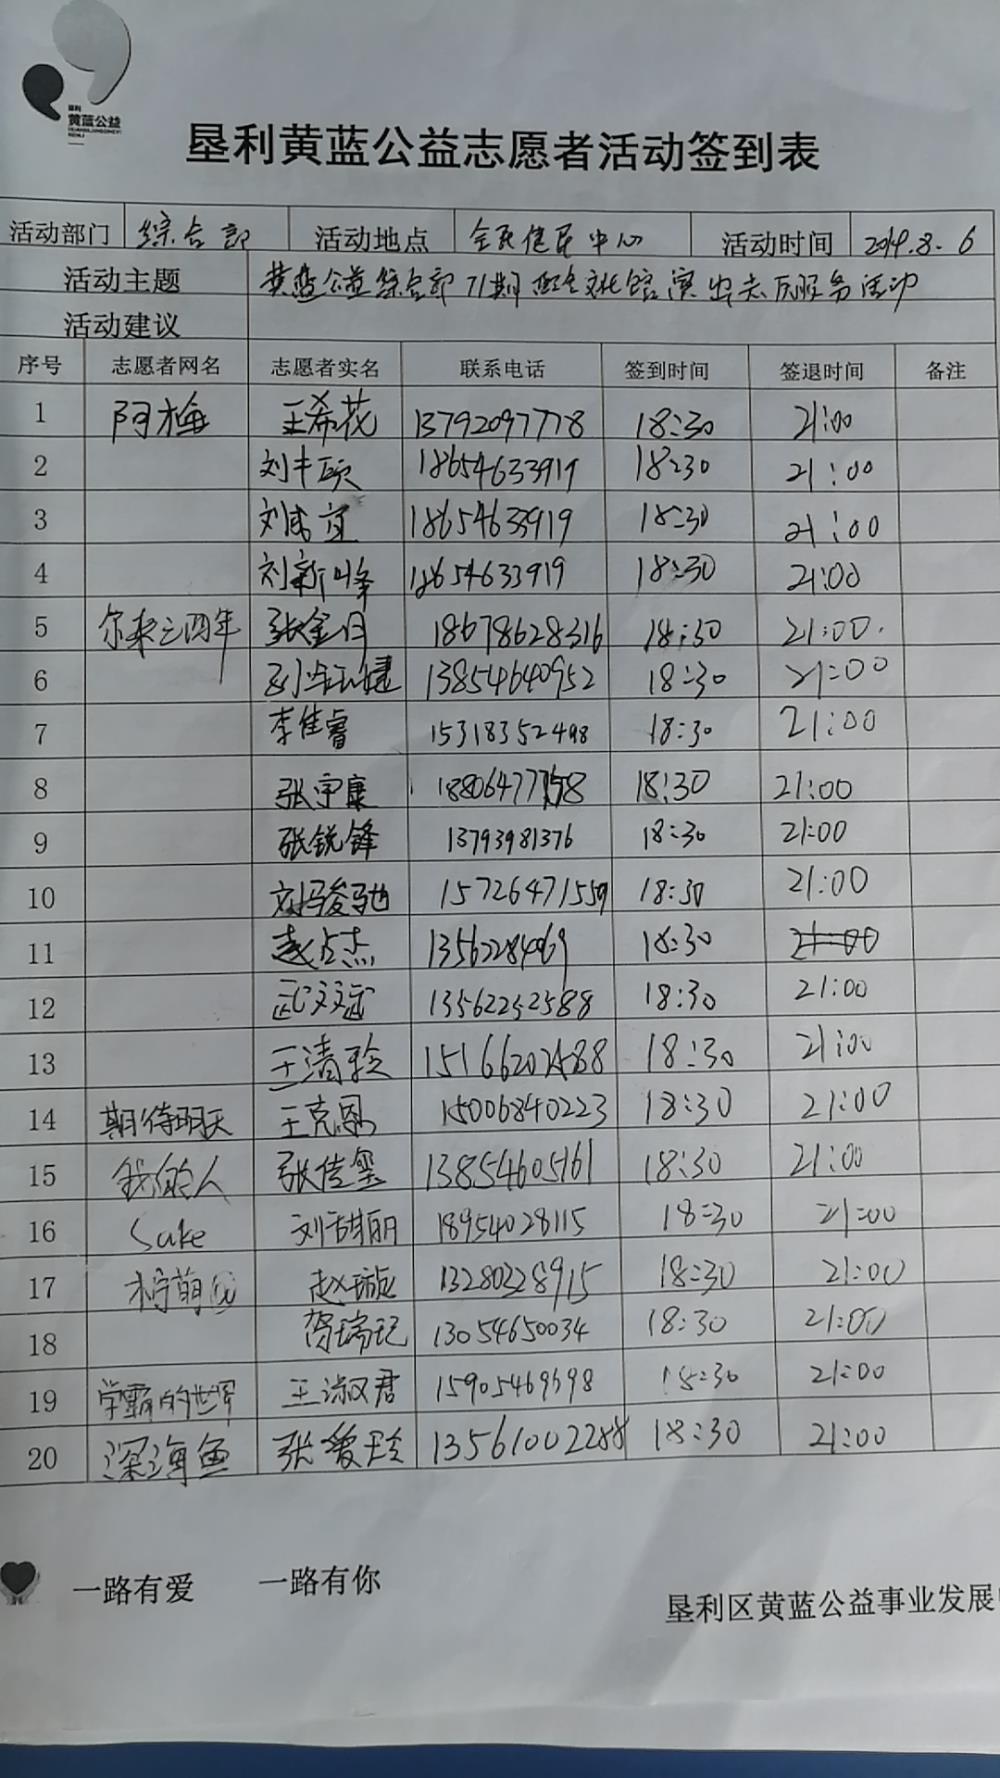 垦利
黄蓝公益
垦利黄蓝公益志愿者活动签到表
活动部门 综合部 活动地点 全民健身中心 活动时间 2019.8.6
活动主题 黄蓝公益综合部71期配合文化馆演出志愿服务活动
活动建议
序号 志愿者网名 志愿者实名 联系电话 签到时间 签退时间 备注
1 阿梅 王希花 13792097778 18:30 21:00
2 刘丰硕 18654633919 18:30 21:00
3 刘宜 18654633919 18:30 21:00
4 刘新峰 18654633919 18:30 21:00
5 尔来三四年 张金月 18678628316 18:30 21:00.
6 13854640952 18:30 21:00
7 李佳睿 15318352498 18:30 21:00
8 张宇康 18806477158 18:30 21:00
9 张锐锋 13793981376 18:30 21:00
10 刘骏驰 15726471559 18:30 21:00
11 赵占杰 13562284069 18:30 21:00
12 武文斌 13562252588 18:30 21:00
13 王清玲 18:30 21:00
14 期待明天 王克恩 15006840223 18:30 21:00
15 我的人 张佳玺 13854605161 18:30 21:00
16 Sake 刘甜丽 18954028115 18:30 21:00
17 柠萌 赵璇 13280328915 18:30 21:00
18 贺瑞记 13054650034 18:30 21:00
19 学霸的世界 王淑君 15905469698 18:30 21:00
20 深海鱼 张爱玲 13561002288 18:30 21:00
一路有爱 一路有你
垦利区黄蓝公益事业发展